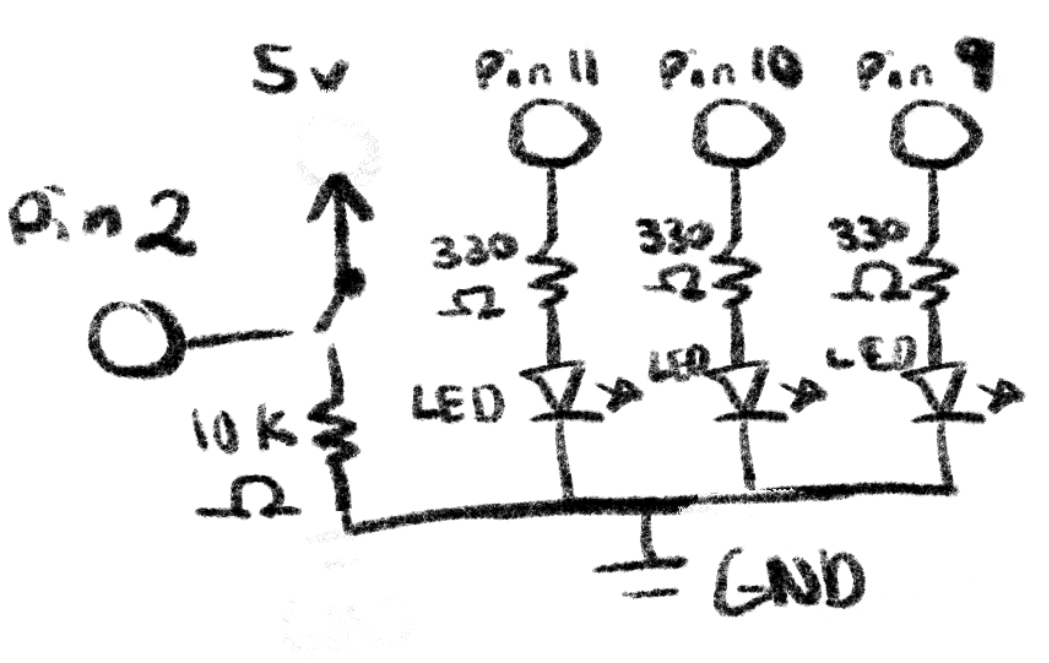 5v
Pin 11
Pin 10
Pin 9
Pin 2
330
Ω
330
Ω
330
Ω
LED
LED
LED
10K
Ω
GND